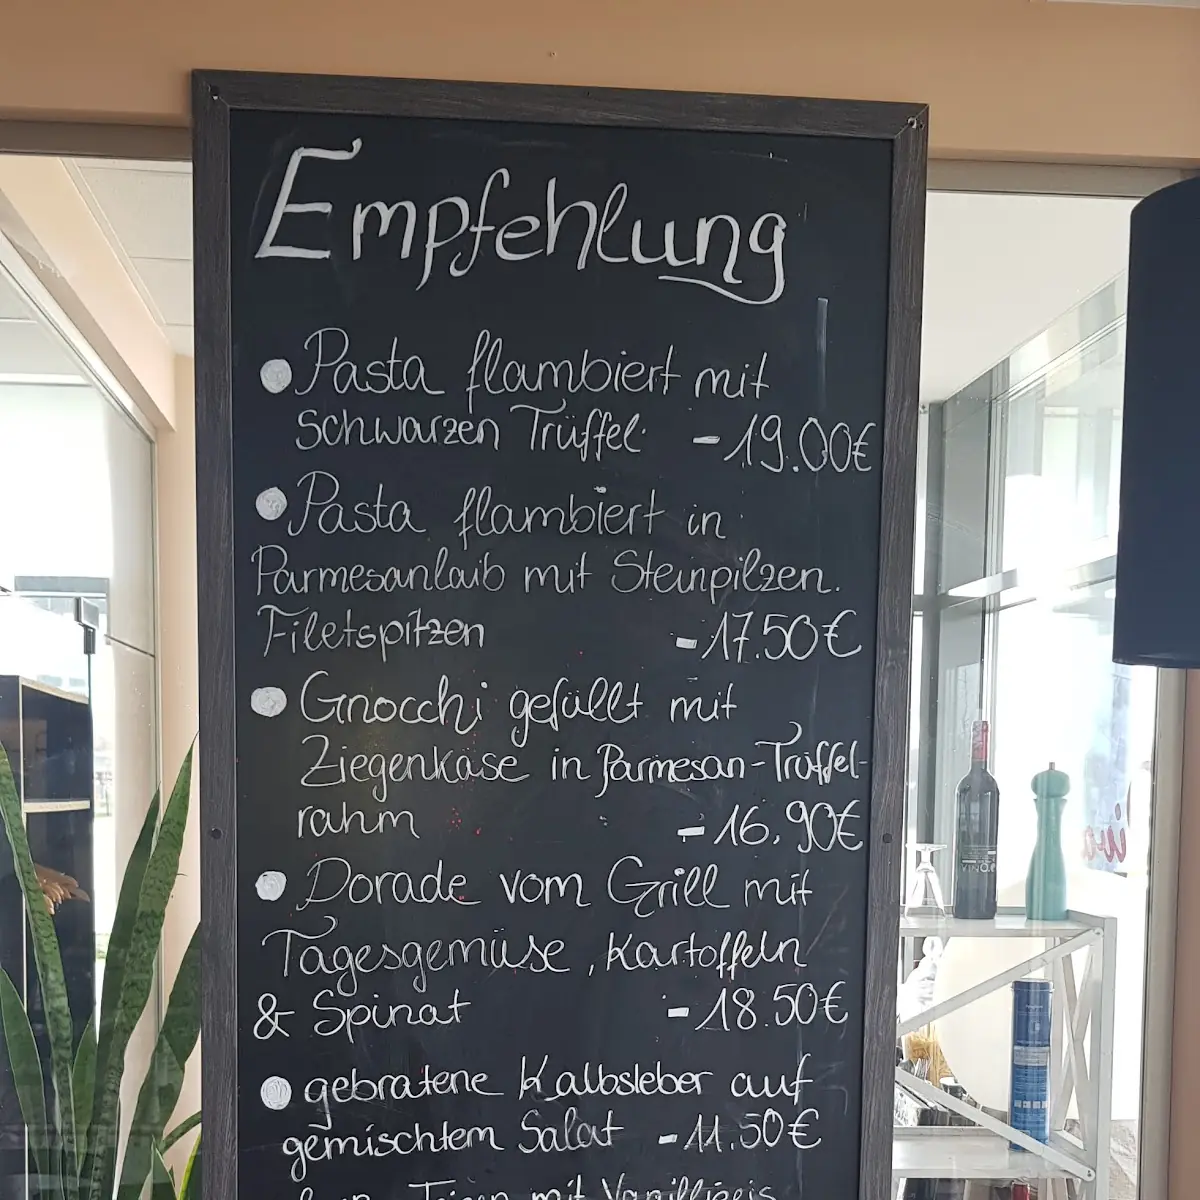 Empfehlung
Pasta flambiert mit
schwarzen Trüffel. - 19.00€
Pasta flambiert in
Parmesanlaib mit Steinpilzen.
Filetspitzen - 17.50€
Gnocchi gefüllt mit
Ziegenkäse in Parmesan-Trüffel-
rahm - 16,90€
Dorade vom Grill mit
Tagesgemüse, Kartoffeln
& Spinat - 18.50€
gebratene Kalbsleber auf
gemischtem Salat - 11.50€
mit Vanilleeis